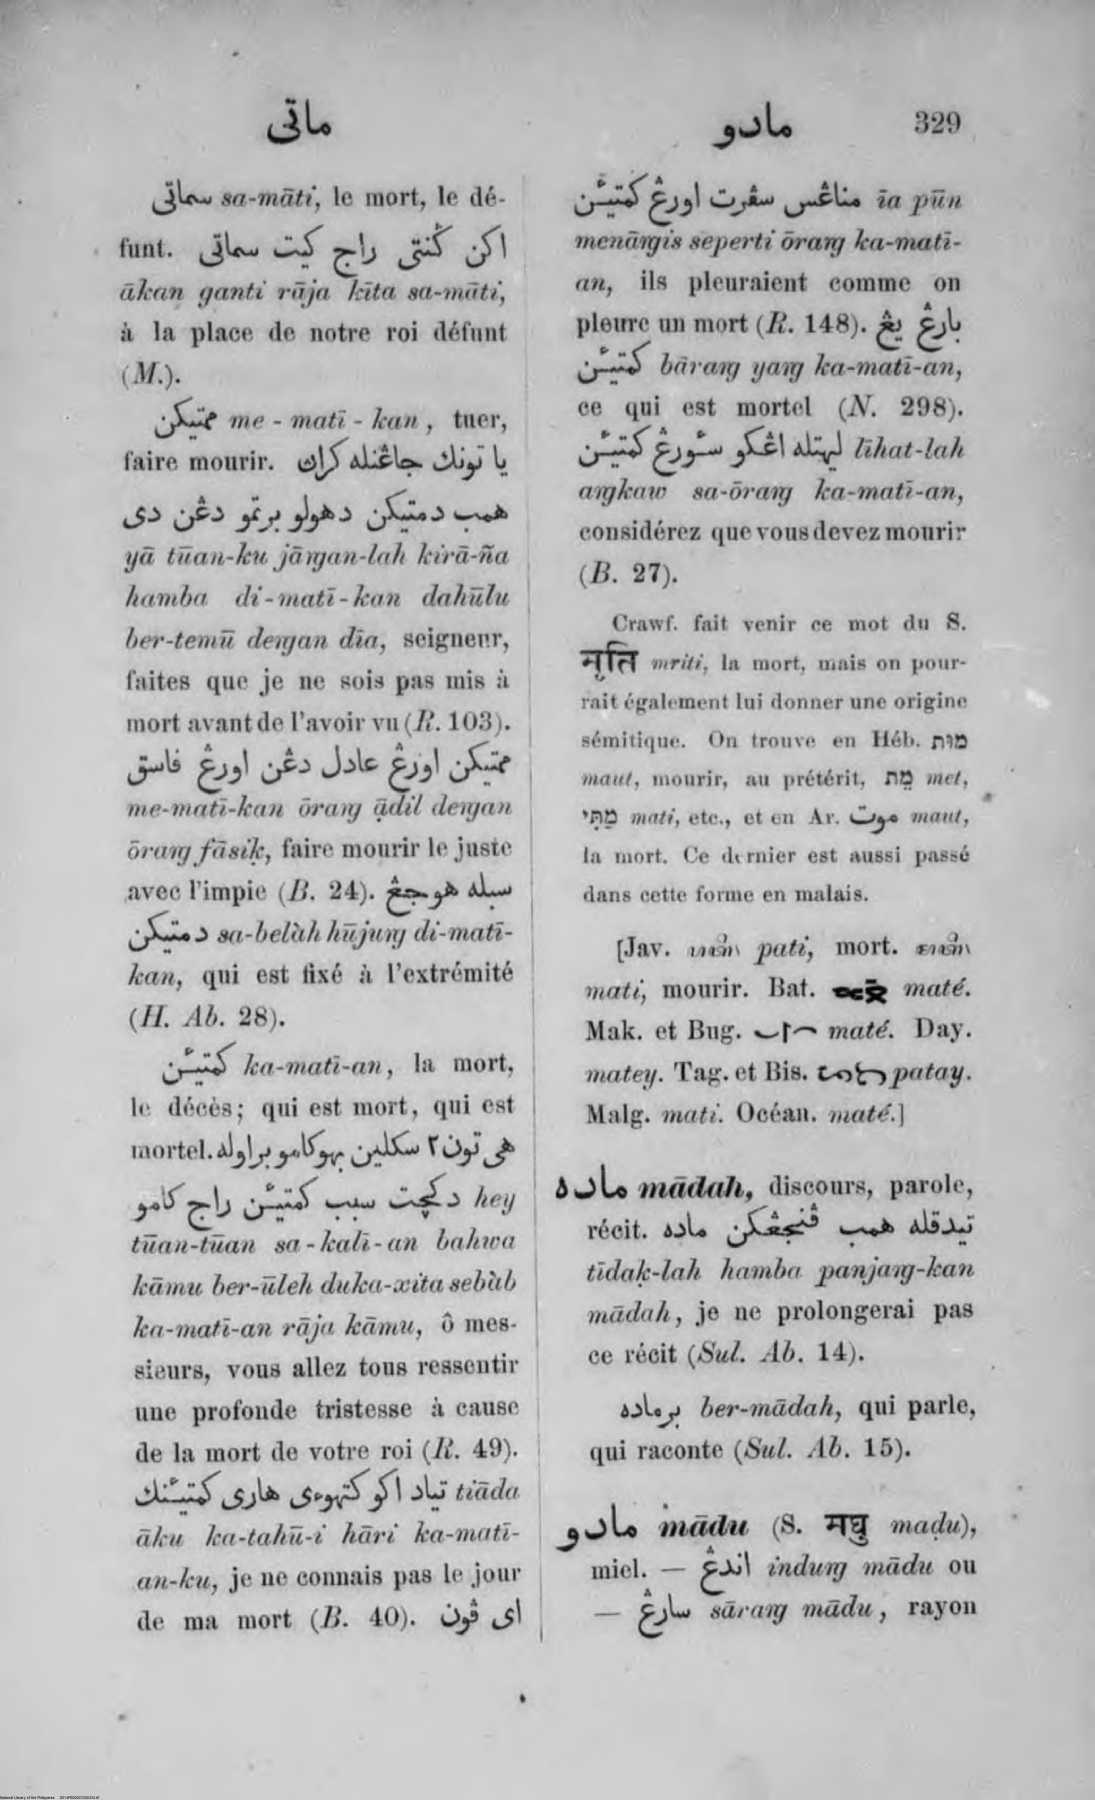 ماتي
مادو
329
سماتي sa-māti, le mort, le dé-
funt. اكن ݢنتي راج كيت سماتي
ākan ganti rāja kīta sa-māti,
à la place de notre roi défunt
(M.).
ممتيكن me-matī-kan, tuer,
faire mourir. يا تونك جاڠنله كران
همب دمتيكن دهولو برتمو دڠن دي
yā tūan-ku jāṅgan-lah kirā-ña
hamba di-matī-kan dahūlu
ber-temū deṅgan dīa, seigneur,
faites que je ne sois pas mis à
mort avant de l'avoir vu (R. 103).
ممتيكن اورڠ عادل دڠن اورڠ فاسق
me-matī-kan ōraṅg ạ̄dil deṅgan
ōraṅg fāsik, faire mourir le juste
avec l'impie (B. 24). سبله هوجڠ
دمتيكن sa-belàh hūjuṅg di-matī-
kan, qui est fixé à l'extrémité
(H. Ab. 28).
كمتيئن ka-matī-an, la mort,
le décès; qui est mort, qui est
mortel. هي تون٢ سكلين بهوكامو براوله
دكچت سبب كمتيئن راج كامو hey
tūan-tūan sa-kalī-an bahwa
kāmu ber-ūleh duka-xita sebàb
ka-matī-an rāja kāmu, ô mes-
sieurs, vous allez tous ressentir
une profonde tristesse à cause
de la mort de votre roi (R. 49).
تياد اكو كتهوءي هاري كمتيئنك tiāda
āku ka-tahū-i hāri ka-matī-
an-ku, je ne connais pas le jour
de ma mort (B. 40). اي ڤون
مناڠس سڤرت اورڠ كمتيئن īa pūn
menāṅgis seperti ōraṅg ka-matī-
an, ils pleuraient comme on
pleure un mort (R. 148). بارڠ يڠ
كمتيئن bāraṅg yaṅg ka-matī-an,
ce qui est mortel (N. 298).
ليهتله اڠكو سئورڠ كمتيئن līhat-lah
aṅgkaw sa-ōraṅg ka-matī-an,
considérez que vous devez mourir
(B. 27).
Crawf. fait venir ce mot du S.
मृति mriti, la mort, mais on pour-
rait également lui donner une origine
sémitique. On trouve en Héb. מוּת
maut, mourir, au prétérit, מֵת met,
מַתִּי mati, etc., et en Ar. موت maut,
la mort. Ce dernier est aussi passé
dans cette forme en malais.
[Jav. pati, mort.
mati, mourir. Bat. maté.
Mak. et Bug. maté. Day.
matey. Tag. et Bis. patay.
Malg. mati. Océan. maté.]
ماده mādah, discours, parole,
récit. تيدقله همب ڤنجڠكن ماده
tīdaḳ-lah hamba panjaṅg-kan
mādah, je ne prolongerai pas
ce récit (Sul. Ab. 14).
برماده ber-mādah, qui parle,
qui raconte (Sul. Ab. 15).
مادو mādu (S. मधु maḍu),
miel. — اندڠ induṅg mādu ou
— سارڠ sāraṅg mādu, rayon